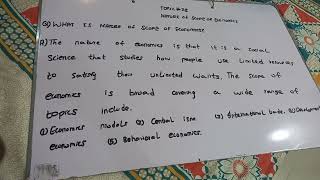 NATURE OF SCOPE OF ECONOMICS
Q) WHAT IS NATURE OF SCOPE OF ECONOMICS
A) The nature of economics is that it is a social
Science that studies how people use limited resources
to satisfy their unlimited wants. The scope of
economics is broad covering a wide range of
topics include.
(1) Economics models (2) Central ism (3) International trade.
economics (5) Behavioral economics.